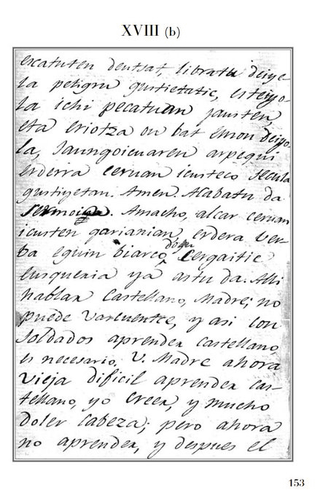 XVIII (b)
escatuten deutsat, libratu deiye-
la peligru gustietatic, esteiyo-
la ichi pecatuan jausten,
eta eriotza on bat emon deiyo-
la, Jaungoicuaren arpegui
ederra ceruan icusteco secula
gustiyetan. Amen. Acabatu da
sermoia. Amacho, alcar ceruan
icusten garianian, erdera ber-
ba eguin biarco dogu, cergaitic
eusqueria ya astu da. Alli
hablar Castellano, Madre; no
puede Vascuentze, y asi con
Soldados aprender castellano
es necesario, V. Madre ahora
vieja dificil aprender Cas-
tellano, yo creer, y mucho
doler cabeza; pero ahora
no aprender, y despues el
153